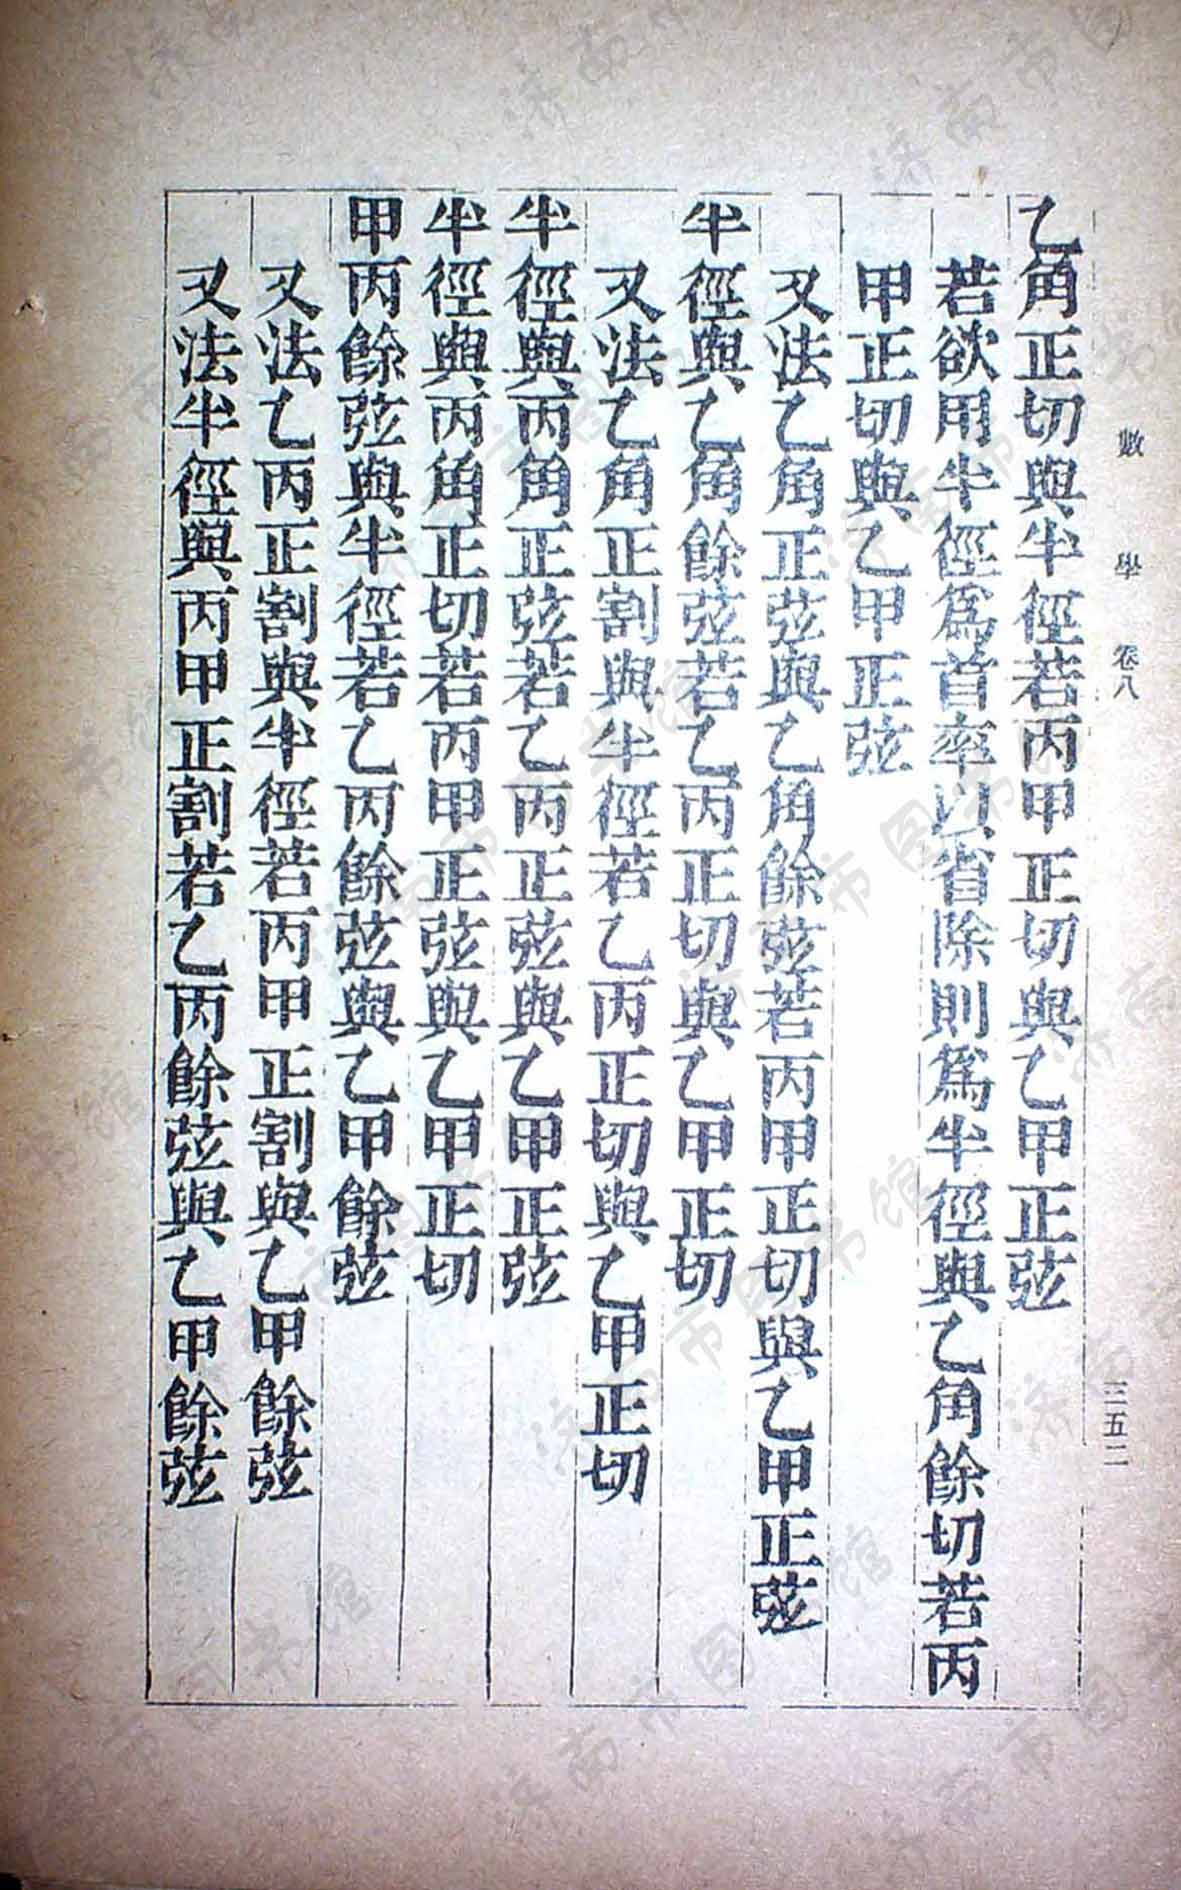 數學 卷八 三五二
乙角正切與半徑若丙甲正切與乙甲正弦
若欲用半徑爲首率以省除則爲半徑與乙角餘切若丙
甲正切與乙甲正弦
又法乙角正弦與乙角餘弦若丙甲正切與乙甲正弦
半徑與乙角餘弦若乙丙正切與乙甲正切
又法乙角正割與半徑若乙丙正切與乙甲正切
半徑與丙角正弦若乙丙正弦與乙甲正弦
半徑與丙角正切若丙甲正弦與乙甲正切
甲丙餘弦與半徑若乙丙餘弦與乙甲餘弦
又法乙丙正割與半徑若丙甲正割與乙甲餘弦
又法半徑與丙甲正割若乙丙餘弦與乙甲餘弦
济南市图书馆